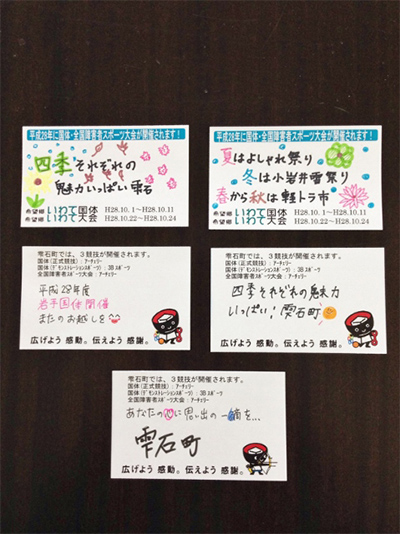 平成28年に国体・全国障害者スポーツ大会が開催されます！
四季それぞれの
魅力いっぱい雫石
希望郷 いわて国体 H28.10.1〜H28.10.11
希望郷 いわて大会 H28.10.22〜H28.10.24
平成28年に国体・全国障害者スポーツ大会が開催されます！
夏はよしゃれ祭り
冬は小岩井雪祭り
春から秋は軽トラ市
希望郷 いわて国体 H28.10.1〜H28.10.11
希望郷 いわて大会 H28.10.22〜H28.10.24
雫石町では、３競技が開催されます。
国体（正式競技）：アーチェリー
国体（デモンストレーションスポーツ）：3B スポーツ
全国障害者スポーツ大会：アーチェリー
平成28年度
岩手国体開催
またのお越しを
広げよう 感動。伝えよう 感謝。
雫石町では、３競技が開催されます。
国体（正式競技）：アーチェリー
国体（デモンストレーションスポーツ）：3B スポーツ
全国障害者スポーツ大会：アーチェリー
四季それぞれの魅力
いっぱい！雫石町
広げよう 感動。伝えよう 感謝。
雫石町では、３競技が開催されます。
国体（正式競技）：アーチェリー
国体（デモンストレーションスポーツ）：3B スポーツ
全国障害者スポーツ大会：アーチェリー
あなたの心に思い出の一滴を…
雫石町
広げよう 感動。伝えよう 感謝。